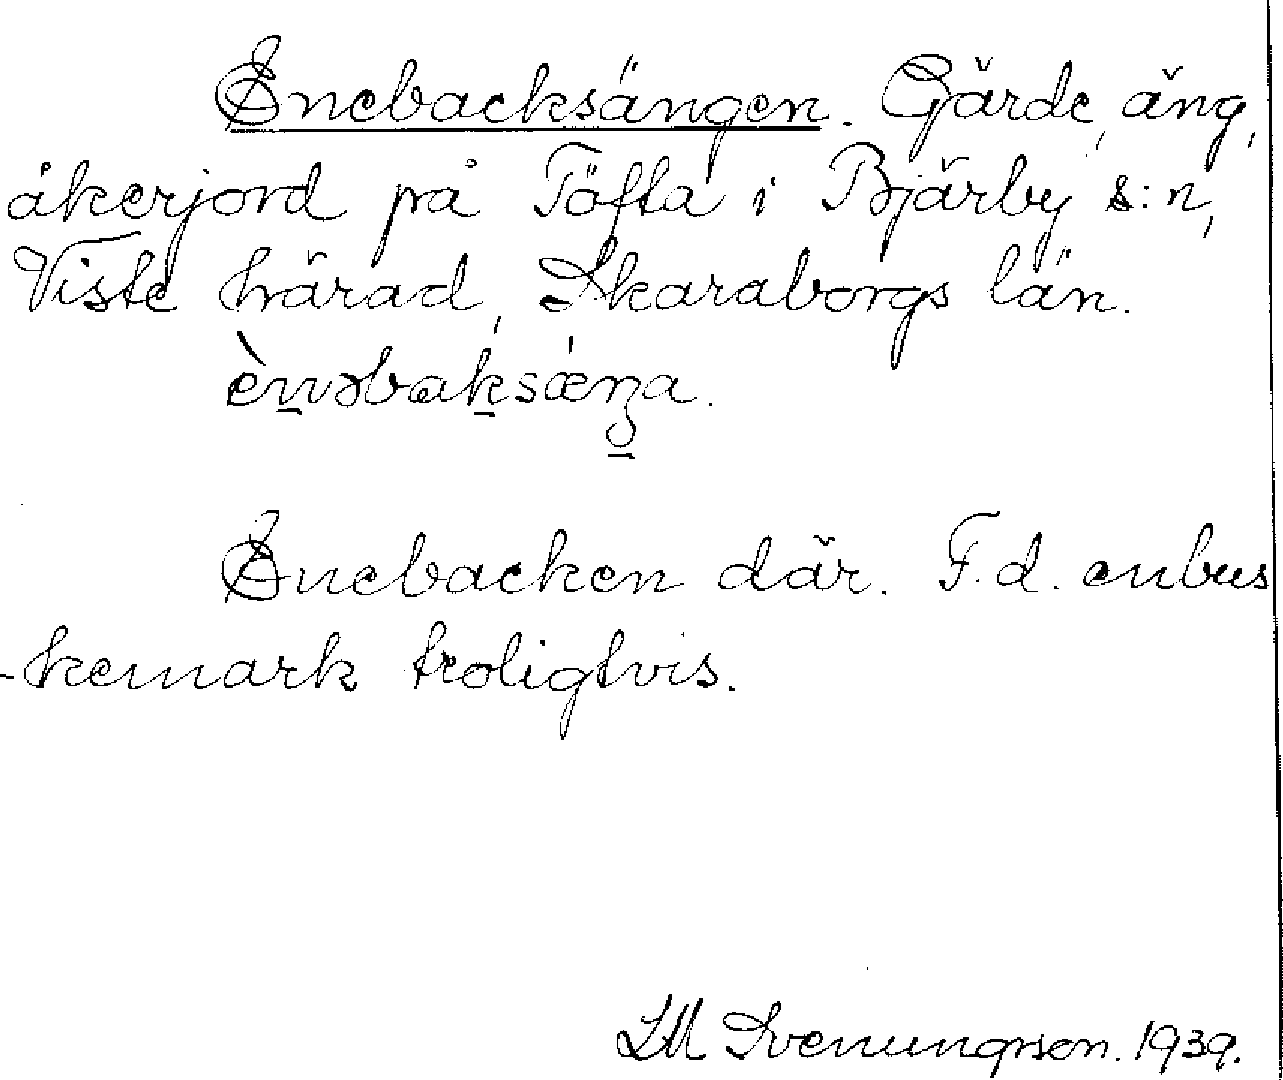 Enebacksängen. Gärde, äng,
åkerjord på Töfta i Bjärby s:n,
Viste härad, Skaraborgs län.
èn̠əbak̠sǽŋa.
Enebacken där. F.d. enbus
-kemark troligtvis.
LM Svenungsson. 1939.